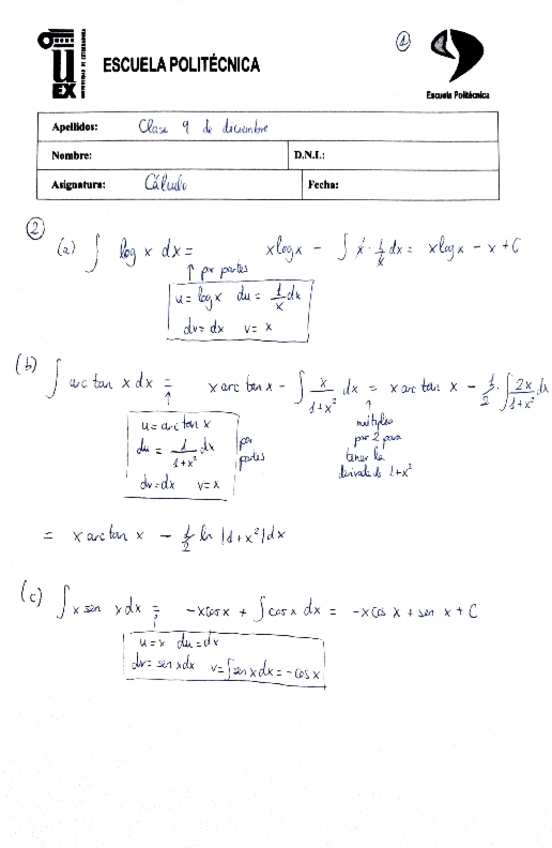 1
UEX
UNIVERSIDAD DE EXTREMADURA
ESCUELA POLITÉCNICA
Escuela Politécnica
Apellidos: Clase 9 de diciembre
Nombre: D.N.I.:
Asignatura: Cálculo Fecha:
2
(a) ∫ log x dx = x log x - ∫ x · 1/x dx = x log x - x + C
↑ por partes
u = log x du = 1/x dx
dv = dx v = x
(b) ∫ arc tan x dx = x arc tan x - ∫ x/(1+x²) dx = x arc tan x - 1/2 · ∫ 2x/(1+x²) dx
↑
u = arc tan x
du = 1/(1+x²) dx
dv = dx v = x
por
partes
↑
multiplico
por 2 para
tener la
derivada de 1+x²
= x arc tan x - 1/2 ln |1+x²| dx
(c) ∫ x sen x dx = -x cos x + ∫ cos x dx = -x cos x + sen x + C
u = x du = dx
dv = sen x dx v = ∫ sen x dx = -cos x